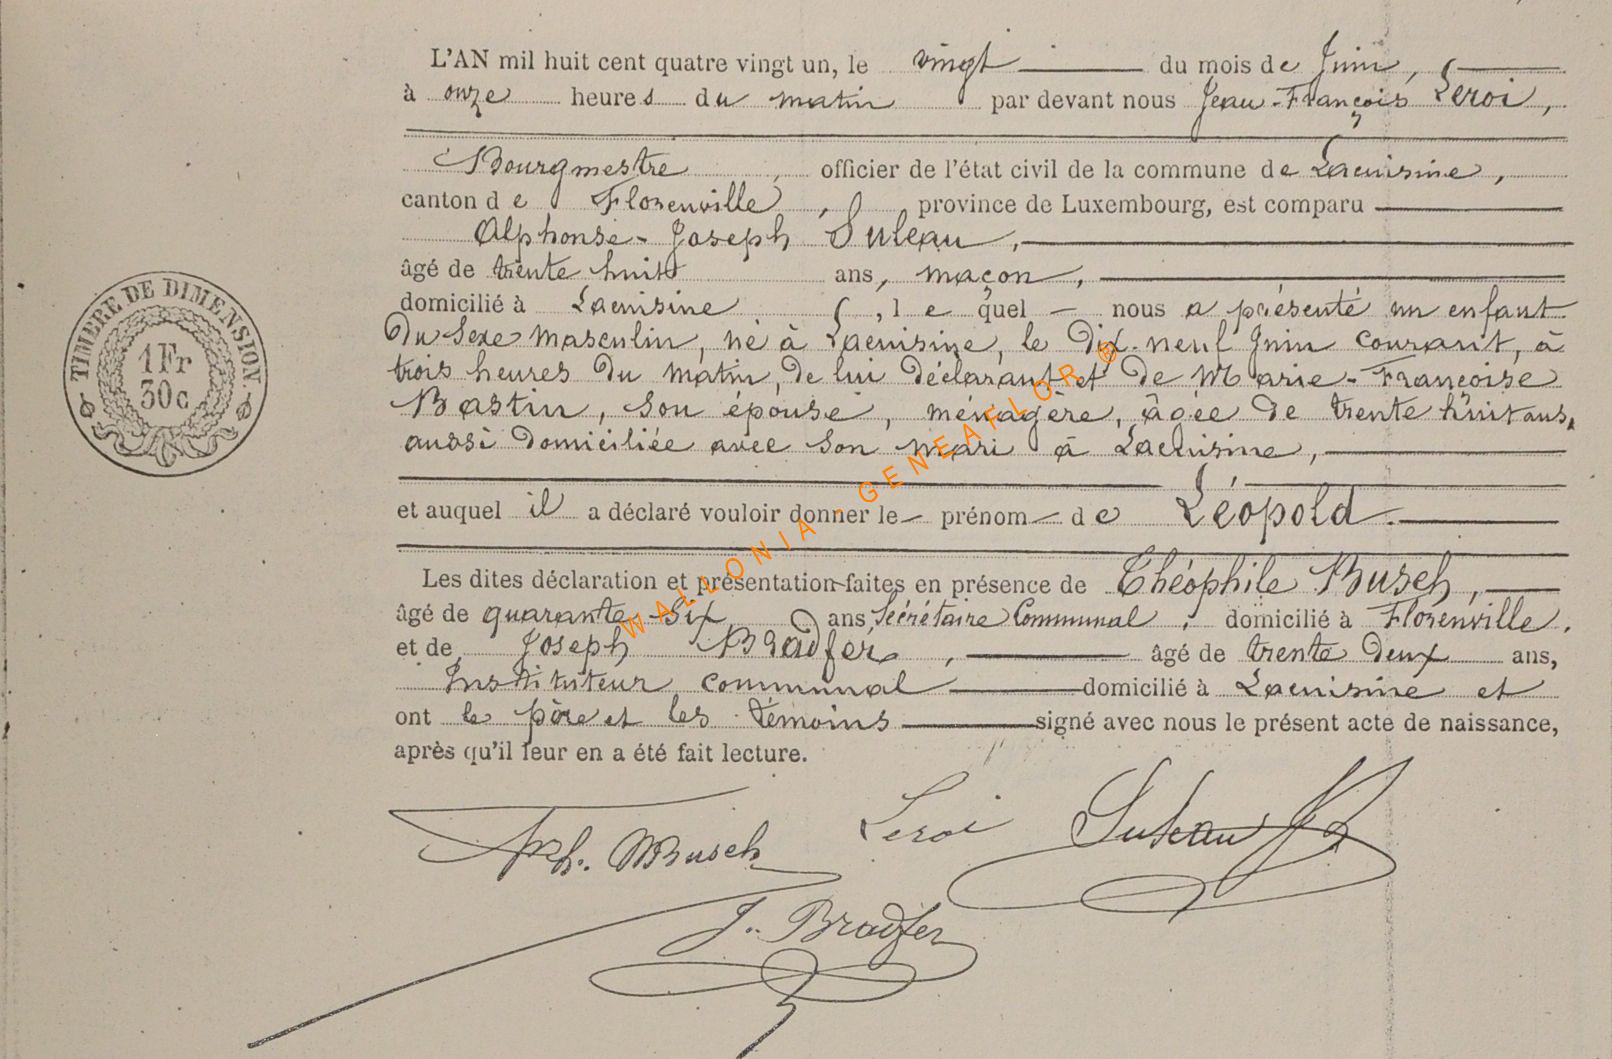 L'AN mil huit cent quatre vingt un, le vingt du mois de Juin,
à onze heures du matin par devant nous Jean-François Leroi,
Bourgmestre, officier de l'état civil de la commune de Lacuisine,
canton de Florenville, province de Luxembourg, est comparu
Alphonse-Joseph Suleau,
âgé de trente huit ans, maçon,
domicilié à Lacuisine, lequel nous a présenté un enfant
du sexe masculin, né à Lacuisine, le dix-neuf Juin courant, à
trois heures du matin, de lui déclarant et de Marie-Françoise
Bastin, son épouse, ménagère, âgée de trente huit ans,
aussi domiciliée avec son mari à Lacuisine,
et auquel il a déclaré vouloir donner le prénom de Léopold.
Les dites déclaration et présentation faites en présence de Théophile Busch,
âgé de quarante six ans, Secrétaire Communal, domicilié à Florenville.
et de Joseph Bradfer, âgé de trente deux ans,
Instituteur communal domicilié à Lacuisine et
ont le père et les témoins signé avec nous le présent acte de naissance,
après qu'il leur en a été fait lecture.
TIMBRE DE DIMENSION.
1Fr
30c
WALLONIA - GENEAFLOR ®
Leroi Suleau
Th. Busch
J. Bradfer